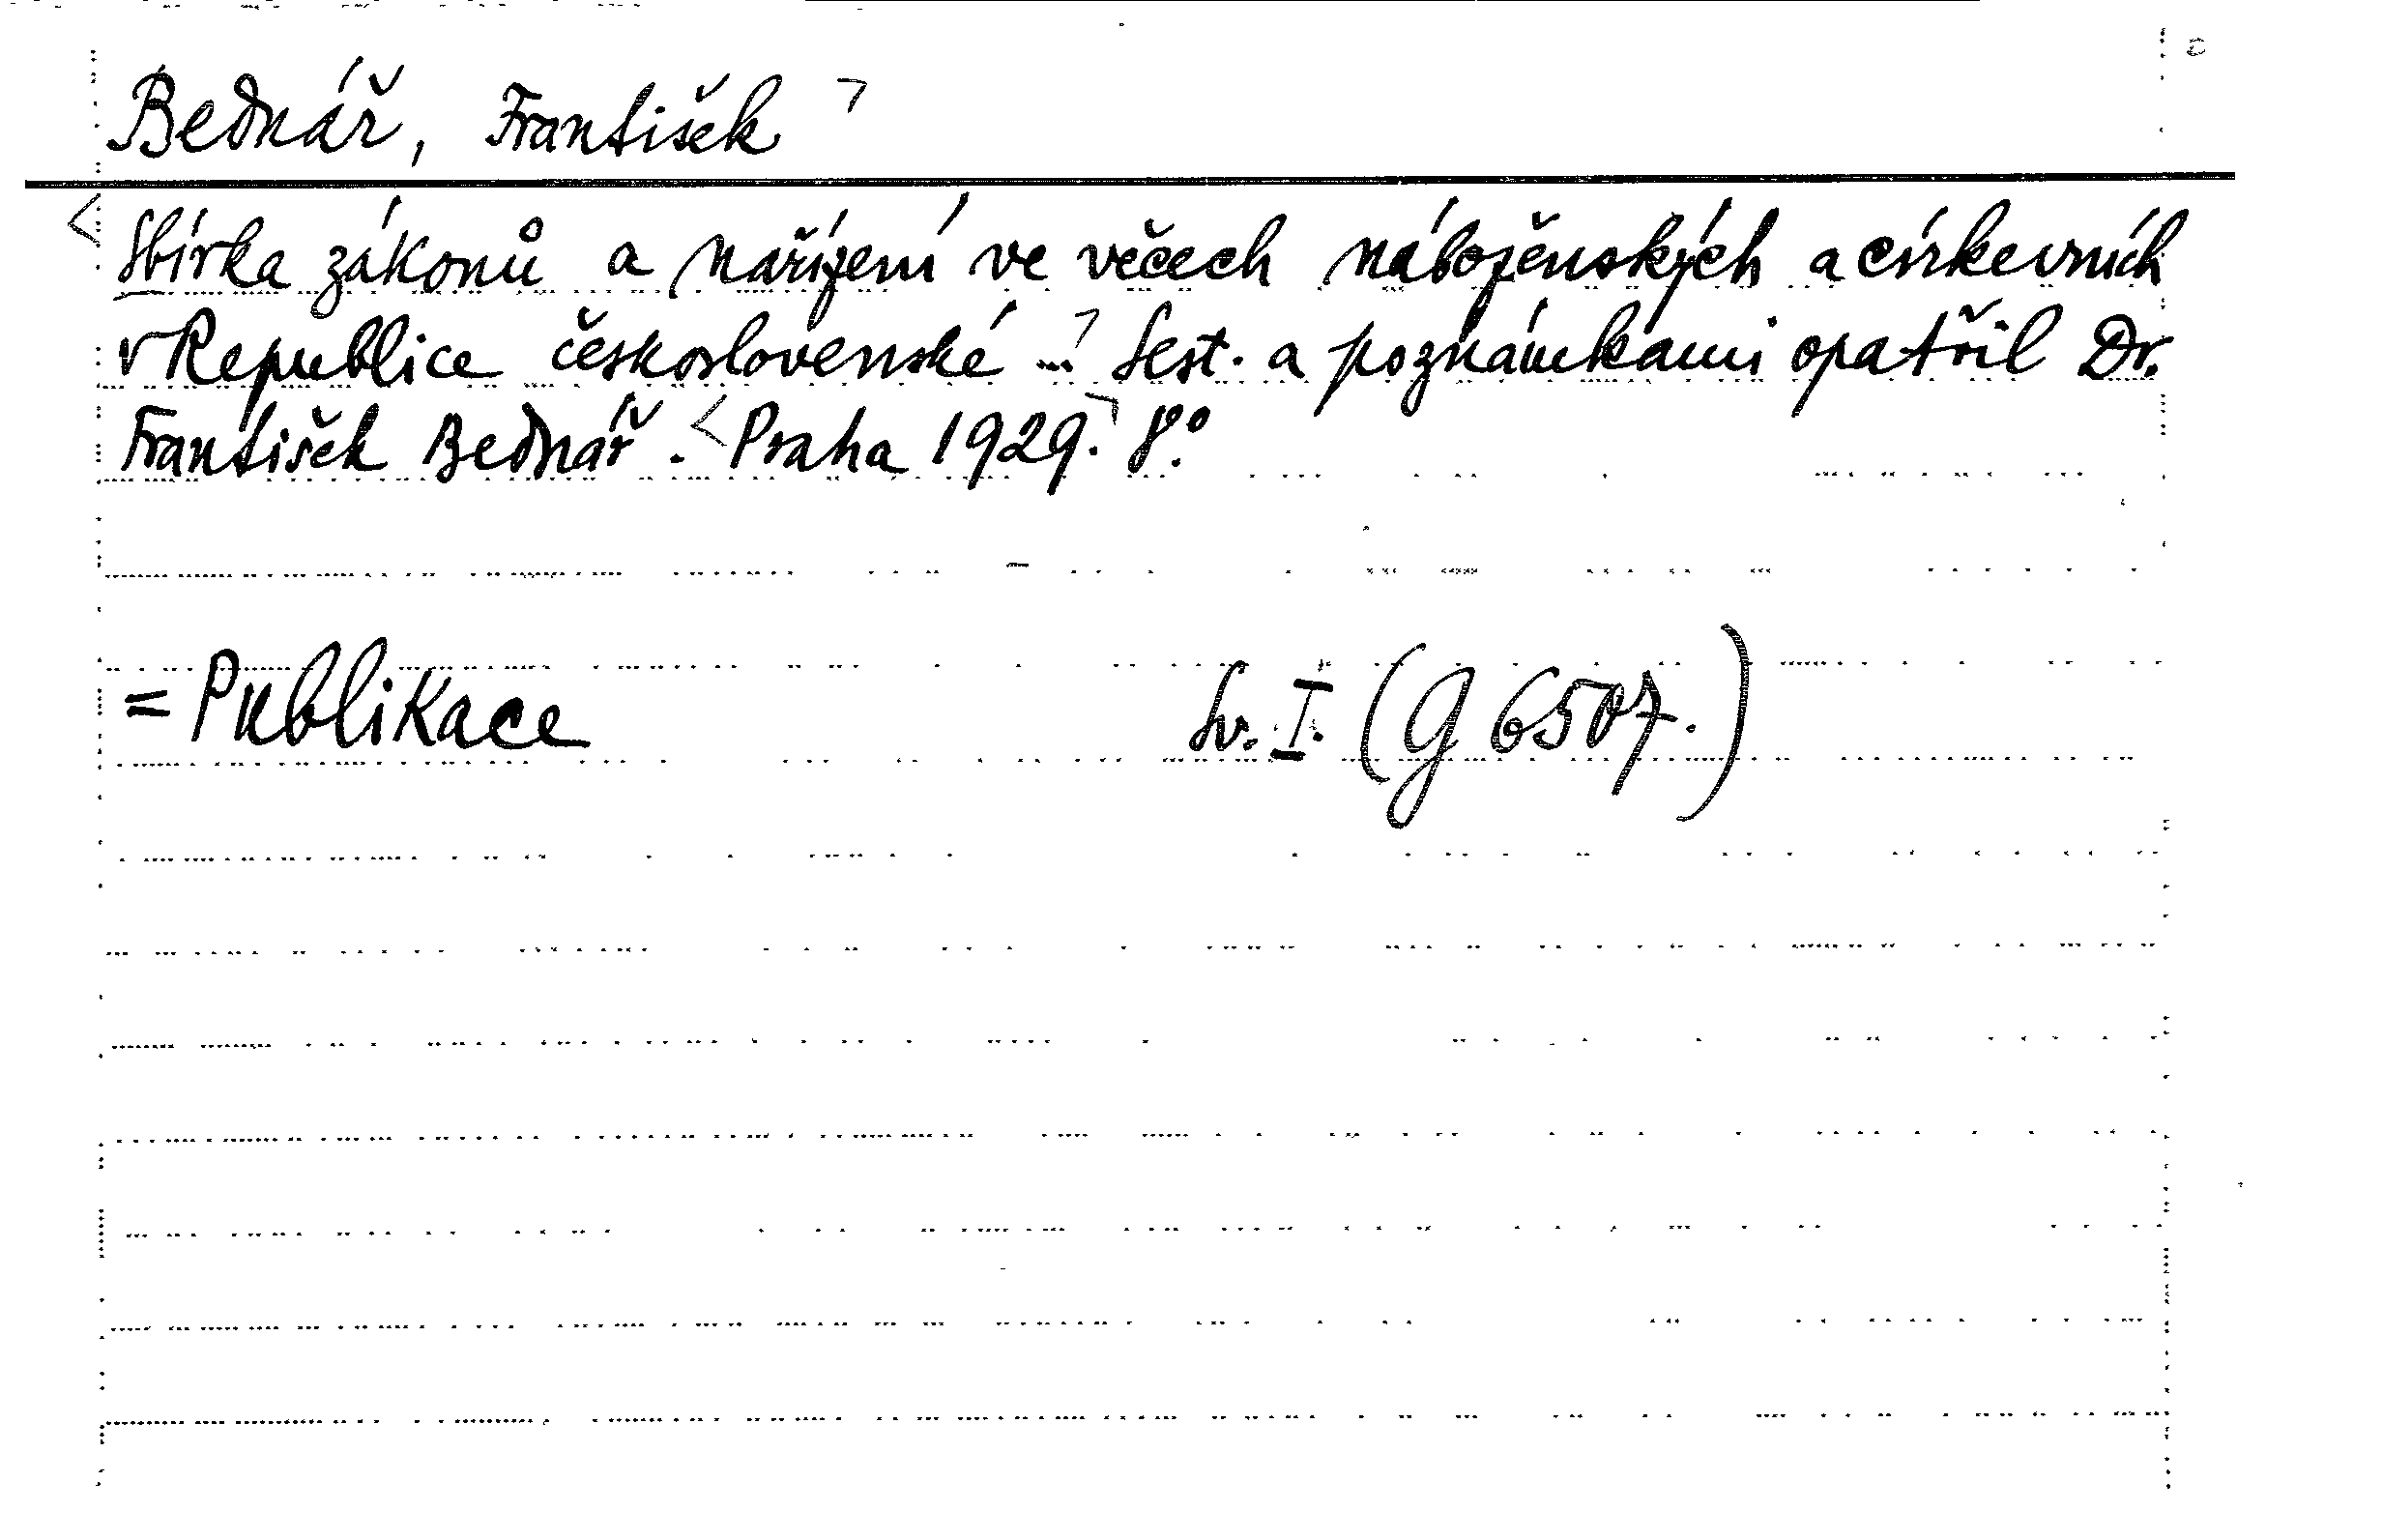 Bednář, František
Sbírka zákonů a nařízení ve věcech náboženských a církevních
v Republice československé ... Sest. a poznámkami opatřil Dr.
František Bednář. Praha 1929. 8°.
= Publikace Sv. I. (G 6507.)